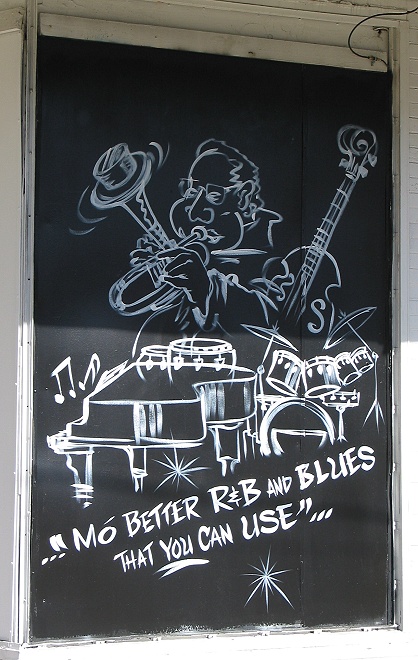 ..."MÓ BETTER R&B AND BLUES
THAT YOU CAN USE"...